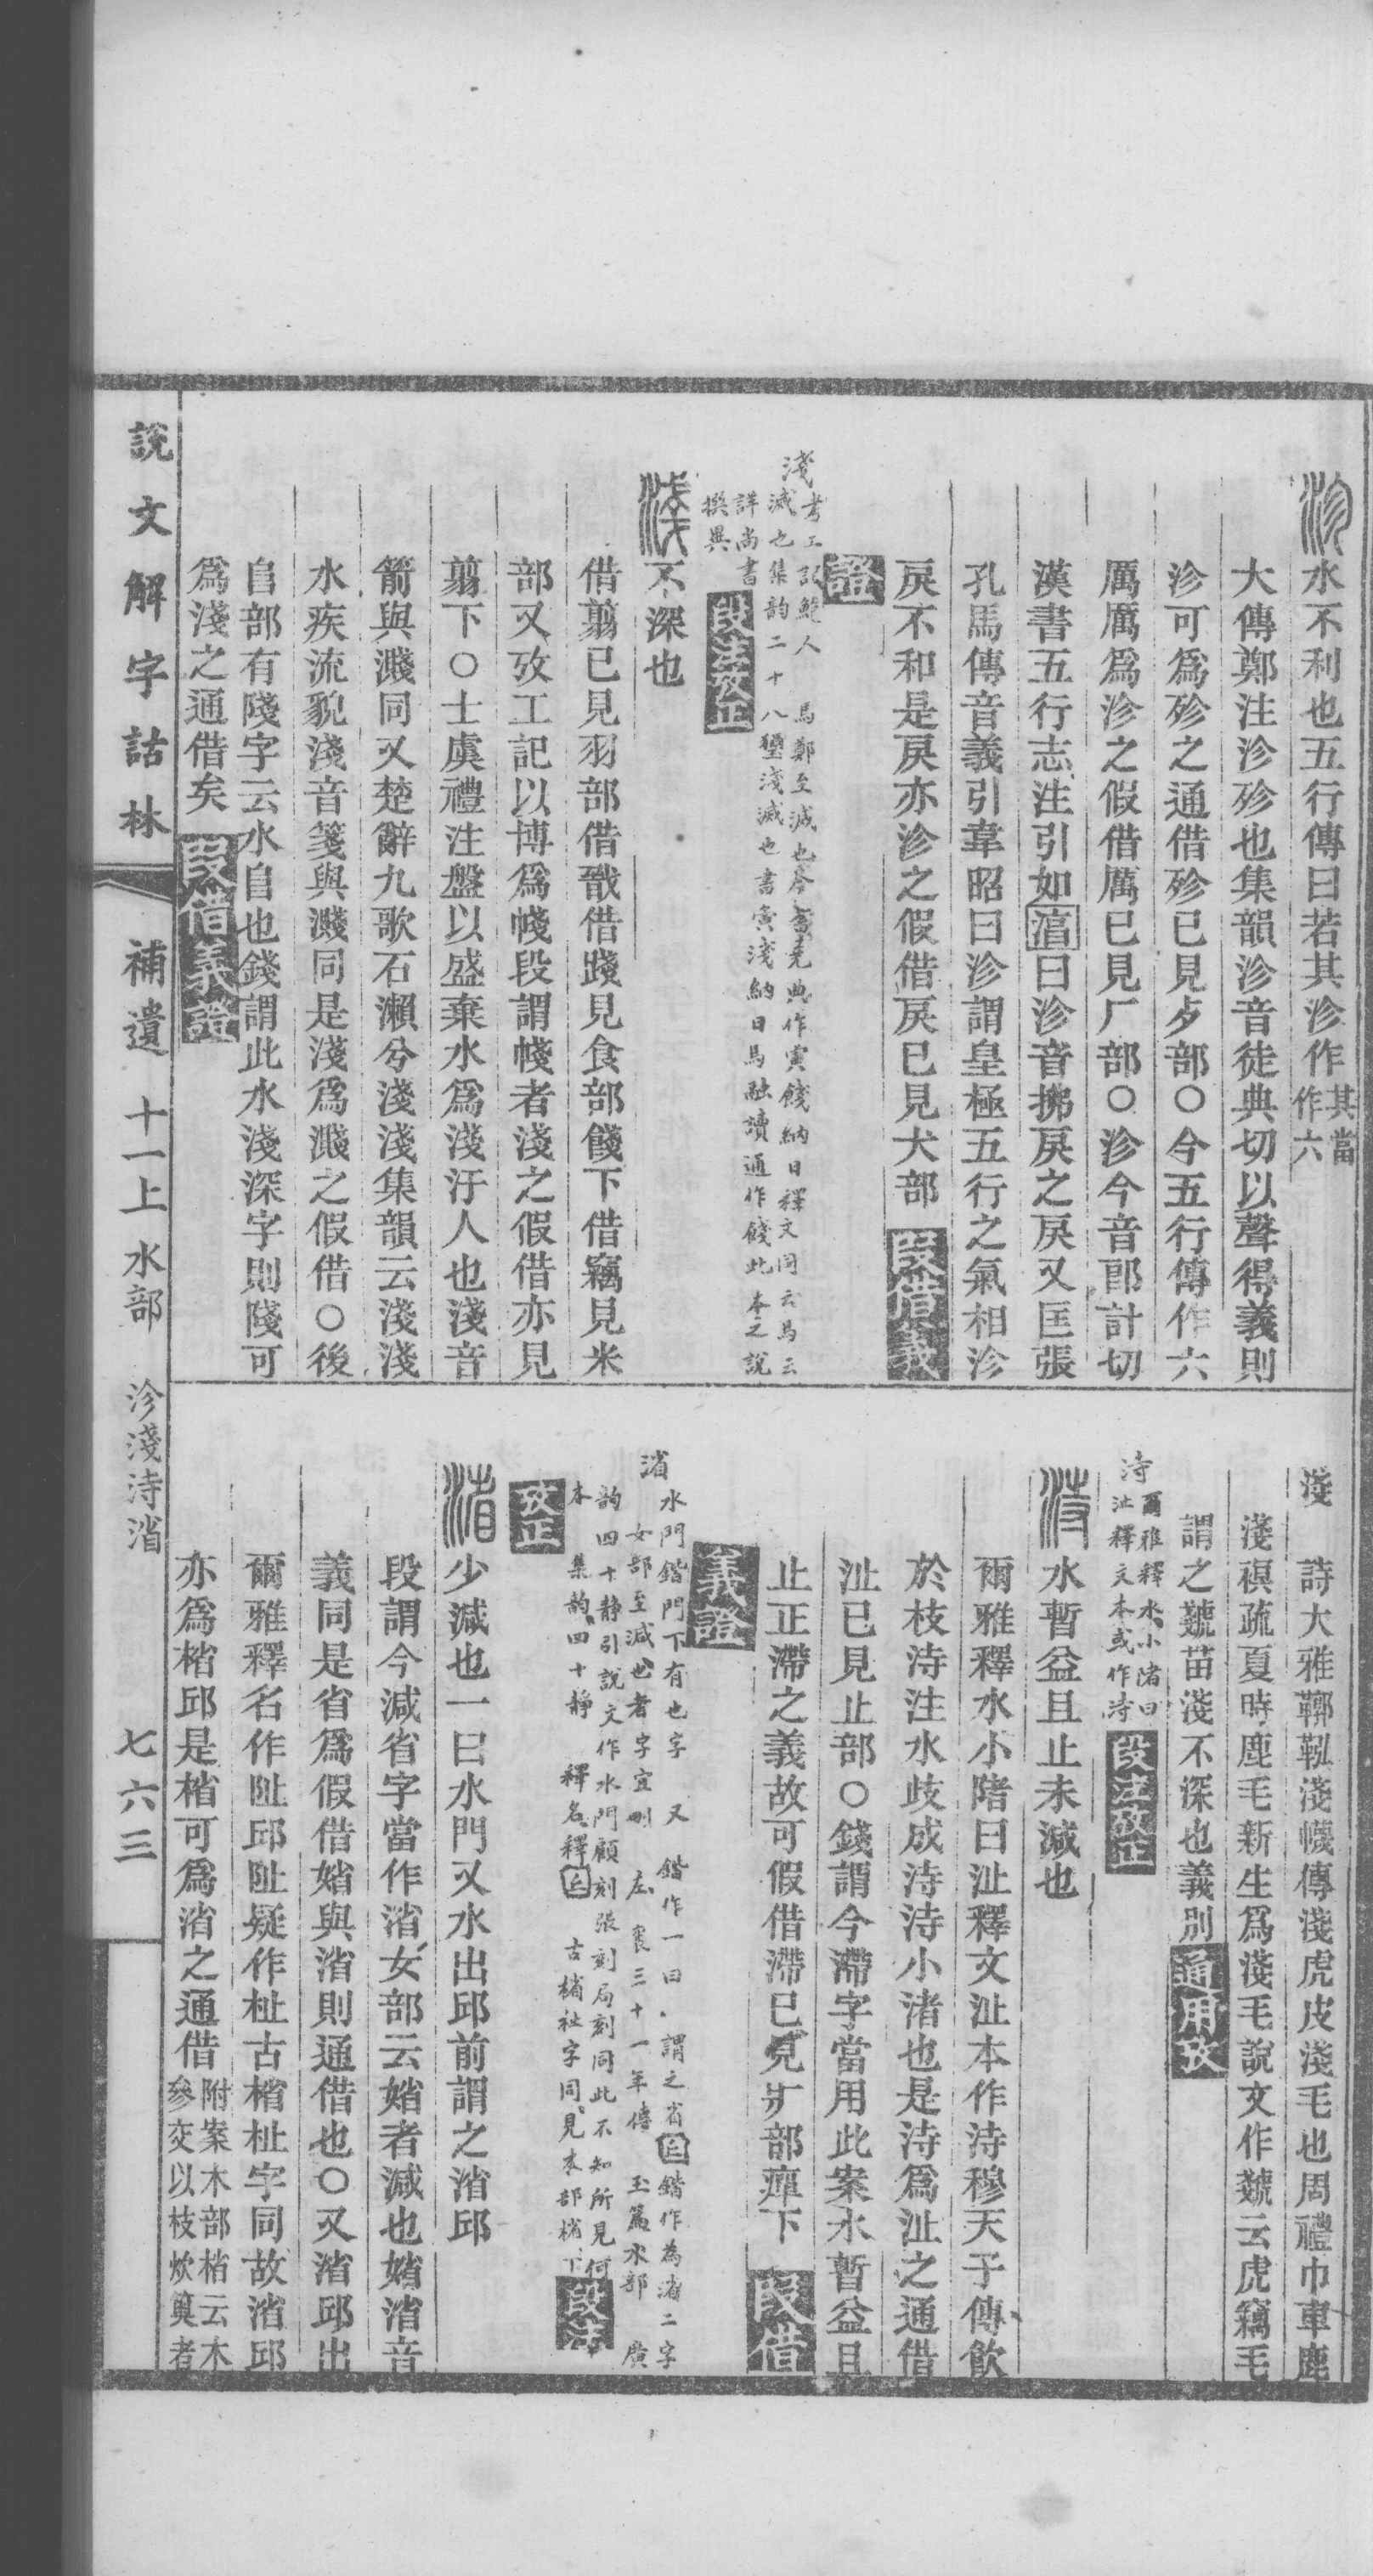 沴水不利也五行傳曰若其沴作其當作六
大傳鄭注沴殄也集韻沴音徒典切以聲得義則
沴可爲殄之通借殄已見歺部○今五行傳作六
厲厲爲沴之假借厲已見厂部○沴今音郎計切
漢書五行志注引如湻曰沴音拂戾之戾又匡張
孔馬傳音義引韋昭曰沴謂皇極五行之氣相沴
戾不和是戾亦沴之假借戾已見犬部 叚借義
證
淺考工記鮑人 馬鄭至滅也今書堯典作寅餞納日釋文同云馬云
滅也集韵二十八獮淺滅也書寅淺納日馬融讀通作餞此本之說
詳尚書
撰異 段注攷正
淺不深也
借翦已見羽部借戩借踐見食部餞下借竊見米
部又攷工記以博爲帴段謂帴者淺之假借亦見
翦下○士虞禮注盤以盛棄水爲淺汙人也淺音
箭與濺同又楚辭九歌石瀨兮淺淺集韻云淺淺
水疾流貌淺音箋與濺同是淺爲濺之假借○後
𨸏部有䧖字云水𨸏也錢謂此水淺深字則䧖可
爲淺之通借矣 叚借義證
淺 詩大雅鞹鞃淺幭傳淺虎皮淺毛也周禮巾車鹿
淺䙝疏夏時鹿毛新生爲淺毛說文作虦云虎竊毛
謂之虦苗淺不深也義別 通用攷
洔爾雅釋水小渚曰
沚釋文本或作洔 段注攷正
洔水暫益且止未減也
爾雅釋水小陼曰沚釋文沚本作洔穆天子傳飲
於枝洔注水歧成洔洔小渚也是洔爲沚之通借
沚已見止部○錢謂今滯字當用此案水暫益且
止正滯之義故可假借滯已見疒部㿃下 叚借
義證
渻水門鍇門下有也字 又 鍇作一曰 謂之省 鍇作為渻二字
女部至減也者字宜刪 左襄三十一年傳 玉篇水部 廣
韵四十靜引說文作水門顧刻張刻局刻同此不知所見何
本 集韵四十靜 釋名釋丘 古楈祉字同見木部楈下 段注
攷正
渻少減也一曰水門又水出邱前謂之渻邱
段謂今減省字當作渻女部云媘者減也媘渻音
義同是省爲假借媘與渻則通借也○又渻邱出
爾雅釋名作阯邱阯疑作杫古楈杫字同故渻邱
亦爲楈邱是楈可爲渻之通借附案木部楈云木參交以枝炊䉛者
說文解字詁林 補遺 十一上 水部 沴淺洔渻 七六三